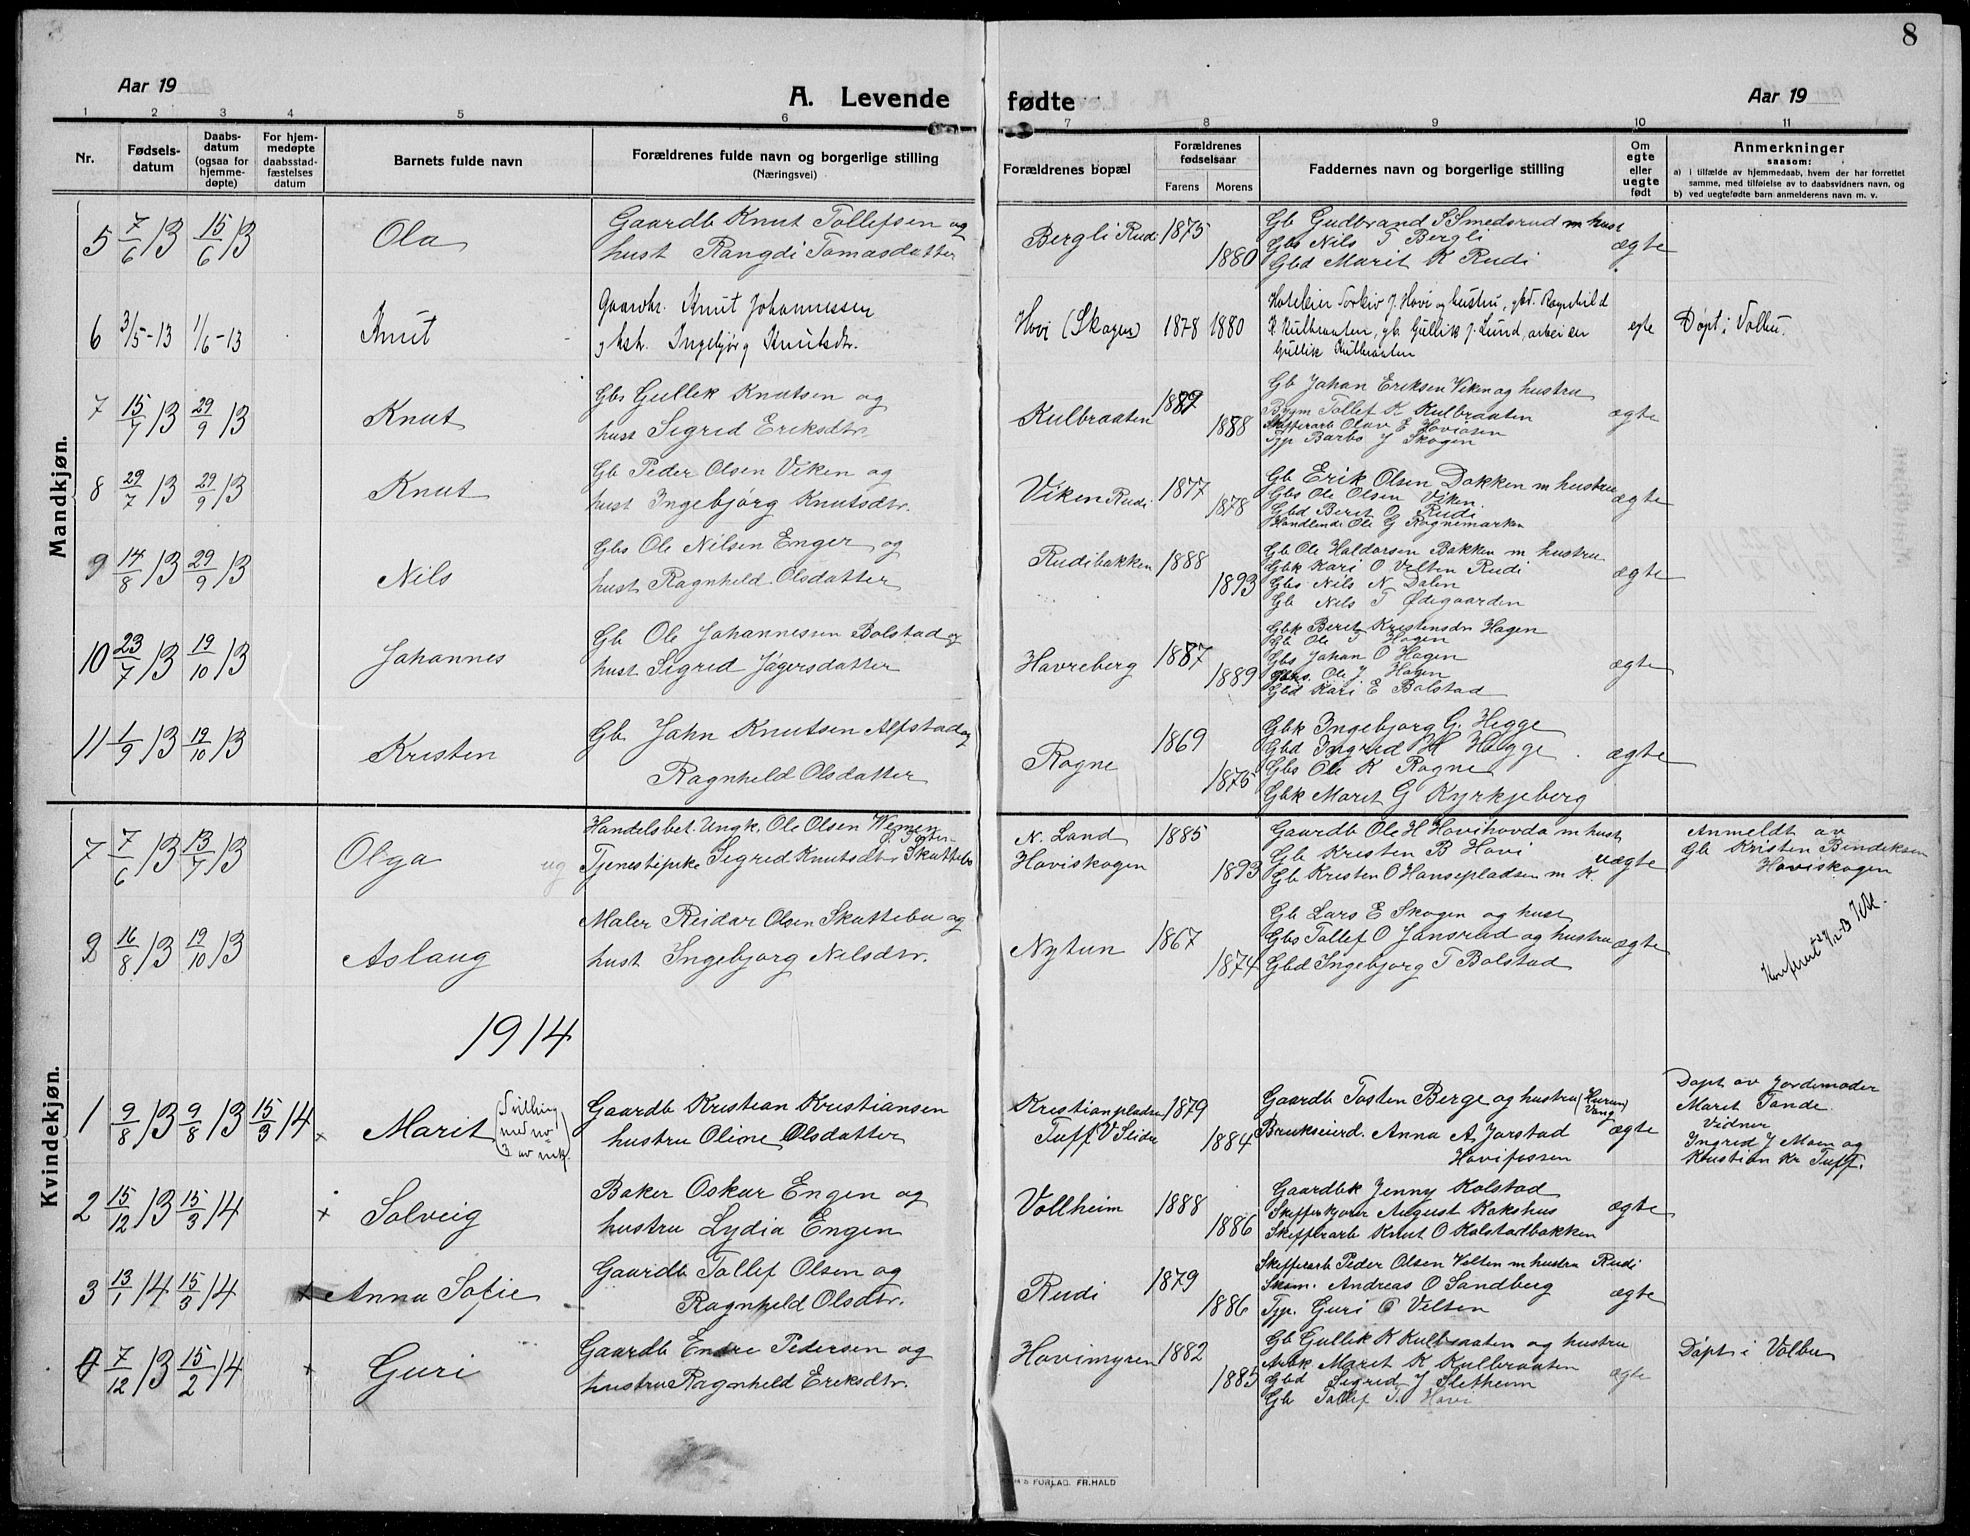 8
Aar 19
A. Levende fødte
Aar 19
1 2 3 4 5 6 7 8 9 10 11
Nr.
Fødsels-datum
Daabs-datum (ogsaa for hjemme-døpte)
For hjem-medøpte daabsstad-fæstelses datum
Barnets fulde navn
Forældrenes fulde navn og borgerlige stilling
(Næringsvei)
Forældrenes bopæl
Forældrenes fødselsaar
Farens Morens
Faddernes navn og borgerlige stilling
Om egte eller uegte født
Anmerkninger
saasom:
a) i tilfælde av hjemmedaab, hvem der har forrettet samme, med tilføielse av to daabsvidners navn, og
b) ved uegtefødte barn anmelderens navn m. v.
Mandkjøn.
5 7/6 13 15/6 13 Ola
Gaardb Knut Tollefsen og
hust Rangdi Tomasdatter
Bergli Rudi 1875 1880
Gb Gudbrand S Smedsrud m hust
Gbs Nils T Bergli
Gbd Marit K Rudi
ægte
6 3/5-13 1/6-13 Knut
Gaardbr. Knut Johannessen
og hstr. Ingebjørg Knutsdtr.
Hovi (Skogen) 1878 1880
Hoteleier Torkiv J. Hovi og hustru, gbd. Ragnhild
K Kulbraaten, gb. Gullik J. Lund, arbeider
Gullik Kulbraaten
egte
Døpt i Volbu.
7 15/7 13 29/9 13 Knut
Gbs Gullek Knutsen og
hust Sigrid Eriksdtr.
Kulbraaten 1887 1888
Gb Johan Eriksen Viken og hustru
Bygm Tollef K Kulbraaten
Skifferarb Olav E Hoviåsen
Tjp Barbo J Skogen
ægte
8 29/7 13 29/9 13 Knut
Gb Peder Olsen Viken og
hust Ingebjørg Knutsdtr.
Viken Rudi 1877 1878
Gb Erik Olsen Dokken m hustru
Gbs Ole Olsen Viken
Gbd Berit O Rudi
Handlende Ole G Rognemarken
ægte
9 14/8 13 29/9 13 Nils
Gbs Ole Nilsen Enger og
hust Ragnheld Olsdatter
Rudibakken 1888 1893
Gb Ole Haldorsen Bakken m hustru
Gbk Kari O Velten Rudi
Gbs Nils N Dalen
Gb Nils T Ødegaarden
ægte
10 23/7 13 19/10 13 Johannes
Gb Ole Johannessen Bolstad og
hust Sigrid Jøgersdatter
Havreberg 1887 1889
Gbk Berit Kristensdr Hagen
Gb Ole T Hagen
Gbs Johan O Hagen
Gbs. Ole J Hagen
Gbd Kari E Bolstad
ægte
11 1/9 13 19/10 13 Kristen
Gb John Knutsen Alfstad og
Ragnheld Olsdatter
Rogne 1869 1875
Gbk Ingebjorg G. Hegge
Gbd Ingrid H Hegge
Gbs Ole K Rogne
Gbk Marit G Kyrkjeberg
ægte
Kvindekjøn.
7 7/6 13 13/7 13 Olga
Handelsbet. Ungk. Ole Olsen Wemen
ug Tjenestipike Sigrid Knutsdtr Skattebo
N. Land
Haviskogen 1885 1893
Gaardb Ole H Hovihovda m hust
Gb Kristen B Hovi
Gb Kristen O Hansepladsen m K.
uægte
Anmeldt av
Gb Kristen Bendeksen
Haviskogen
8 16/8 13 19/10 13 Aslaug
Maler Reidar Olsen Skattebu og
hust Ingebjorg Nilsdtr.
Nytun 1867 1874
Gb Lars E Skogen og hust
Gbs Tollef O Jansrud og hustru
Gbd Ingebjorg T Bolstad
ægte
1914
1 9/8 13 9/8 13 15/3 14 x Marit (Tvilling med no 3 av mk.)
Gaardb Kristian Kristiansen
hustru Oline Olsdatter
Kristianpladsen
Tuff V Slidre 1879 1884
Gaardb Tosten Berge og hustru (Hurum Vang)
Brukseierd. Anna A Jarstad
Hovifossen
ægte
Døpt av Jordemoder
Marit Tande
Vidner
Ingrid J Moen og
Kristian Kr Tuff.
2 15/12 13 15/3 14 x Solveig
Baker Oskar Engen og
hustru Lydia Engen
Vollheim 1888 1886
Gaardbk Jenny Kolstad
Skifferkjører August Kokshus
Skifferarb Knut O Kolstadbakken
ægte
3 13/1 14 15/3 14 x Anna Sofie
Gaardb Tollef Olsen og
Ragnheld Olsdtr.
Rudi 1879 1886
Skifferarb Peder Olsen Velten m hustru Rudi
Skom. Andreas O Sandberg
Tjp. Guri O Velten
ægte
7/12 13 15/2 14 x Guri
Gaardb Endre Pedersen og
hustru Ragnheld Eriksdtr.
Hovimyren 1882 1885
Gb Gullik K Kulbraaten og hustru
Arbk Marit K Kulbraaten
Gbd Sigrid J Sletheim
Gb Tollef T. Hovi
ægte
Døpt i Volbu
FORLAG. FR. HALD